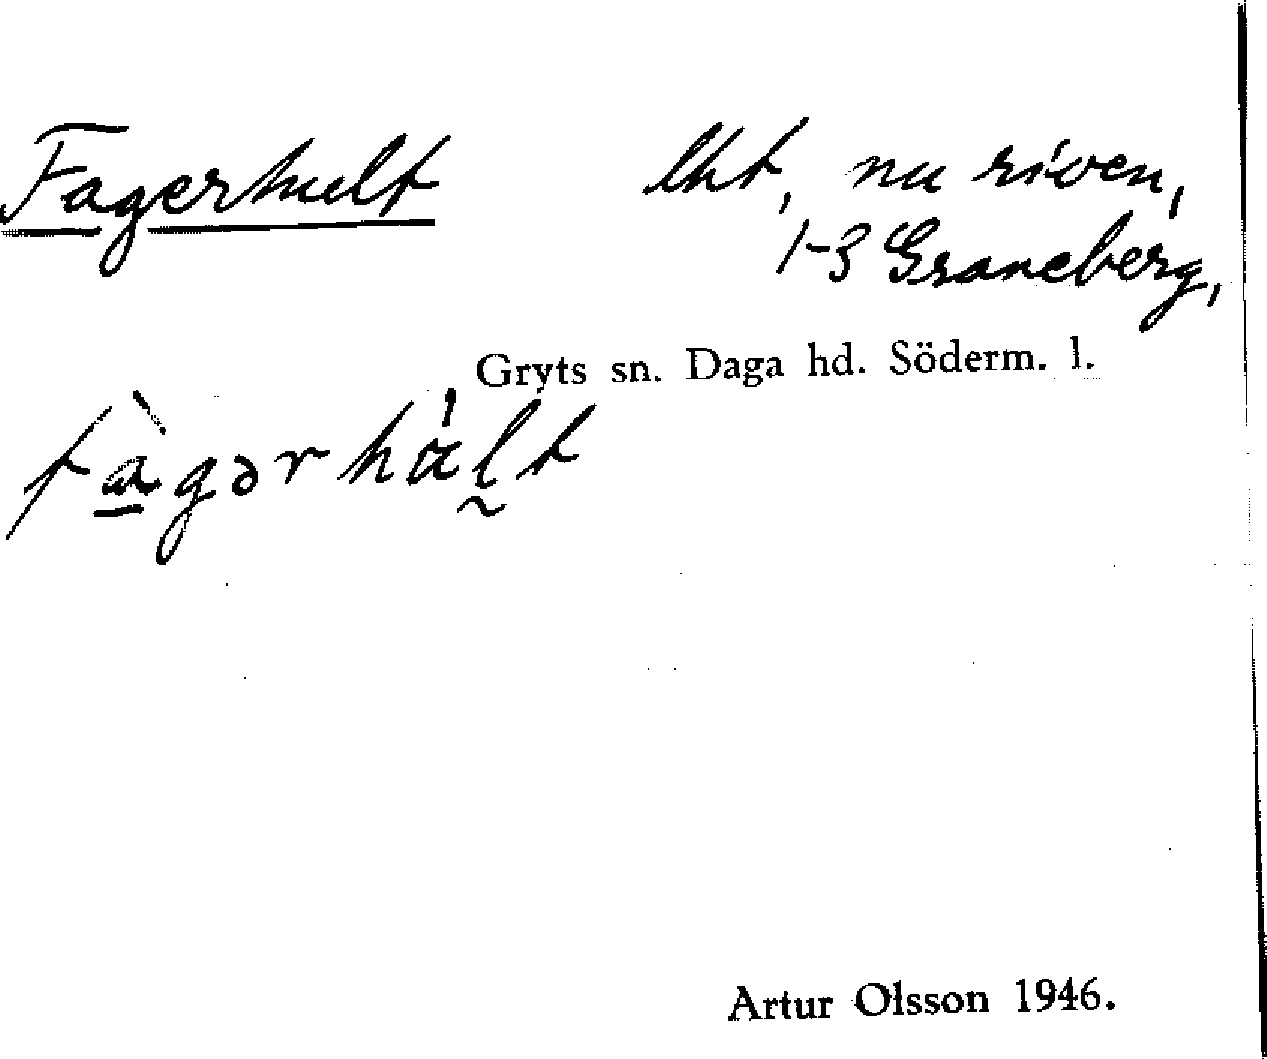 Fagerhult lht, nu riven,
1-3 Graneberg,
Gryts sn. Daga hd. Söderm. l.
fàgərhál̰t
Artur Olsson 1946.